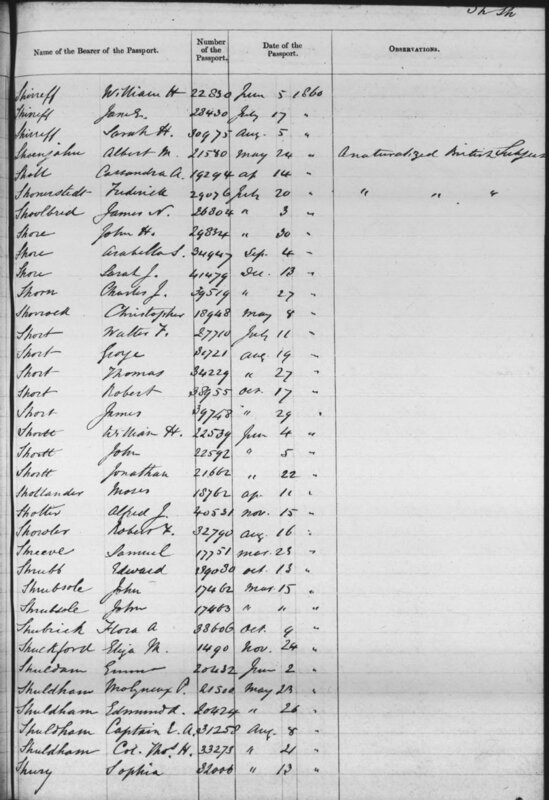 Sh Sh
Name of the Bearer of the Passport. Number of the Passport. Date of the Passport. Observations.
Shirreff William H 22830 June 5 1860
Shirreff Jane E. 28430 July 17 "
Shirreff Sarah H. 30975 Aug. 5 "
Albert M. 21530 May 24 " A naturalized British Subject
Sholl Cassandra A. 19294 ap. 14 "
Frederick 29076 July 20 " " " "
Shoolbred James N. 26804 " 3 "
Shore John H. 29834 " 30 "
Shore Arabella S. 34947 Sep. 4 "
Shore Sarah J. 41479 Dec. 13 "
Shorn Charles J. 39519 " 27 "
Shorrock Christopher 18948 May 8 "
Short Walter F. 27710 July 11 "
Short George 31721 Aug 19 "
Short Thomas 34229 " 27 "
Short Robert 38955 Oct. 17 "
Short James 39748 " 29 "
Shortt William H. 22539 June 4 "
Shortt John 22592 " 5 "
Shortt Jonathan 21662 " 22 "
Shotlander Moses 18762 ap. 11 "
Shotter Alfred J. 40531 Nov. 15 "
Showler Robert F. 32790 Aug. 16 "
Shreeve Samuel 17751 Mar. 23 "
Shrubb Edward 39030 Oct. 13 "
Shrubsole John 17462 Mar. 15 "
Shrubsole John 17463 " " "
Shubrick Flora A 38606 Oct. 9 "
Shuckford Eliza M. 1490 Nov. 24 "
Shuldam Emma 20432 June 2 "
Shuldham Molyneux P. 21500 May 23 "
Shuldham Edmund A. 20424 " 26 "
Shuldham Captain E. A. 31258 Aug. 8 "
Shuldham Col. Thos. H. 33273 " 21 "
Shury Sophia 32006 " 13 "